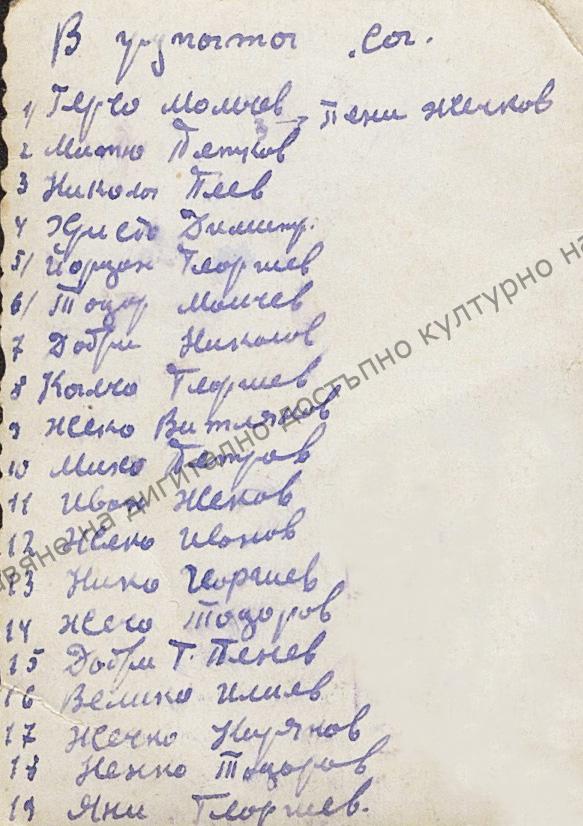 В групата са.
1/ Герчо Молчев → Пени Жечков
2 Митю Пенчов
3 Никола Пеев
4 Христо Димитр.
5/ Йордан Георгиев
6/ Тодор Молчев
7 Добри Николов
8 Кольчо Георгиев
9 Жеко Витляков
10 Мико Петров
11 Иван Жеков
12 Жеко Иванов
13 Нико Георгиев
14 Жечо Тодоров
15 Добри Т. Пенев
16 Велико Илиев
17 Жечко Кирянов
18 Ненко Тодоров
19 Яни Георгиев.
на дигитално достъпно културно на